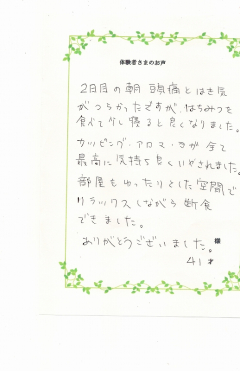 体験者さまのお声
2日目の朝 頭痛とはき気
がつらかったですが、はちみつを
食べて少し寝ると良くなりました。
カッピング・アロマ・きが全て
最高に気持ち良くいやされました。
部屋もゆったりとした空間で
リラックスしながら断食
できました。
ありがとうございました。
様
41才